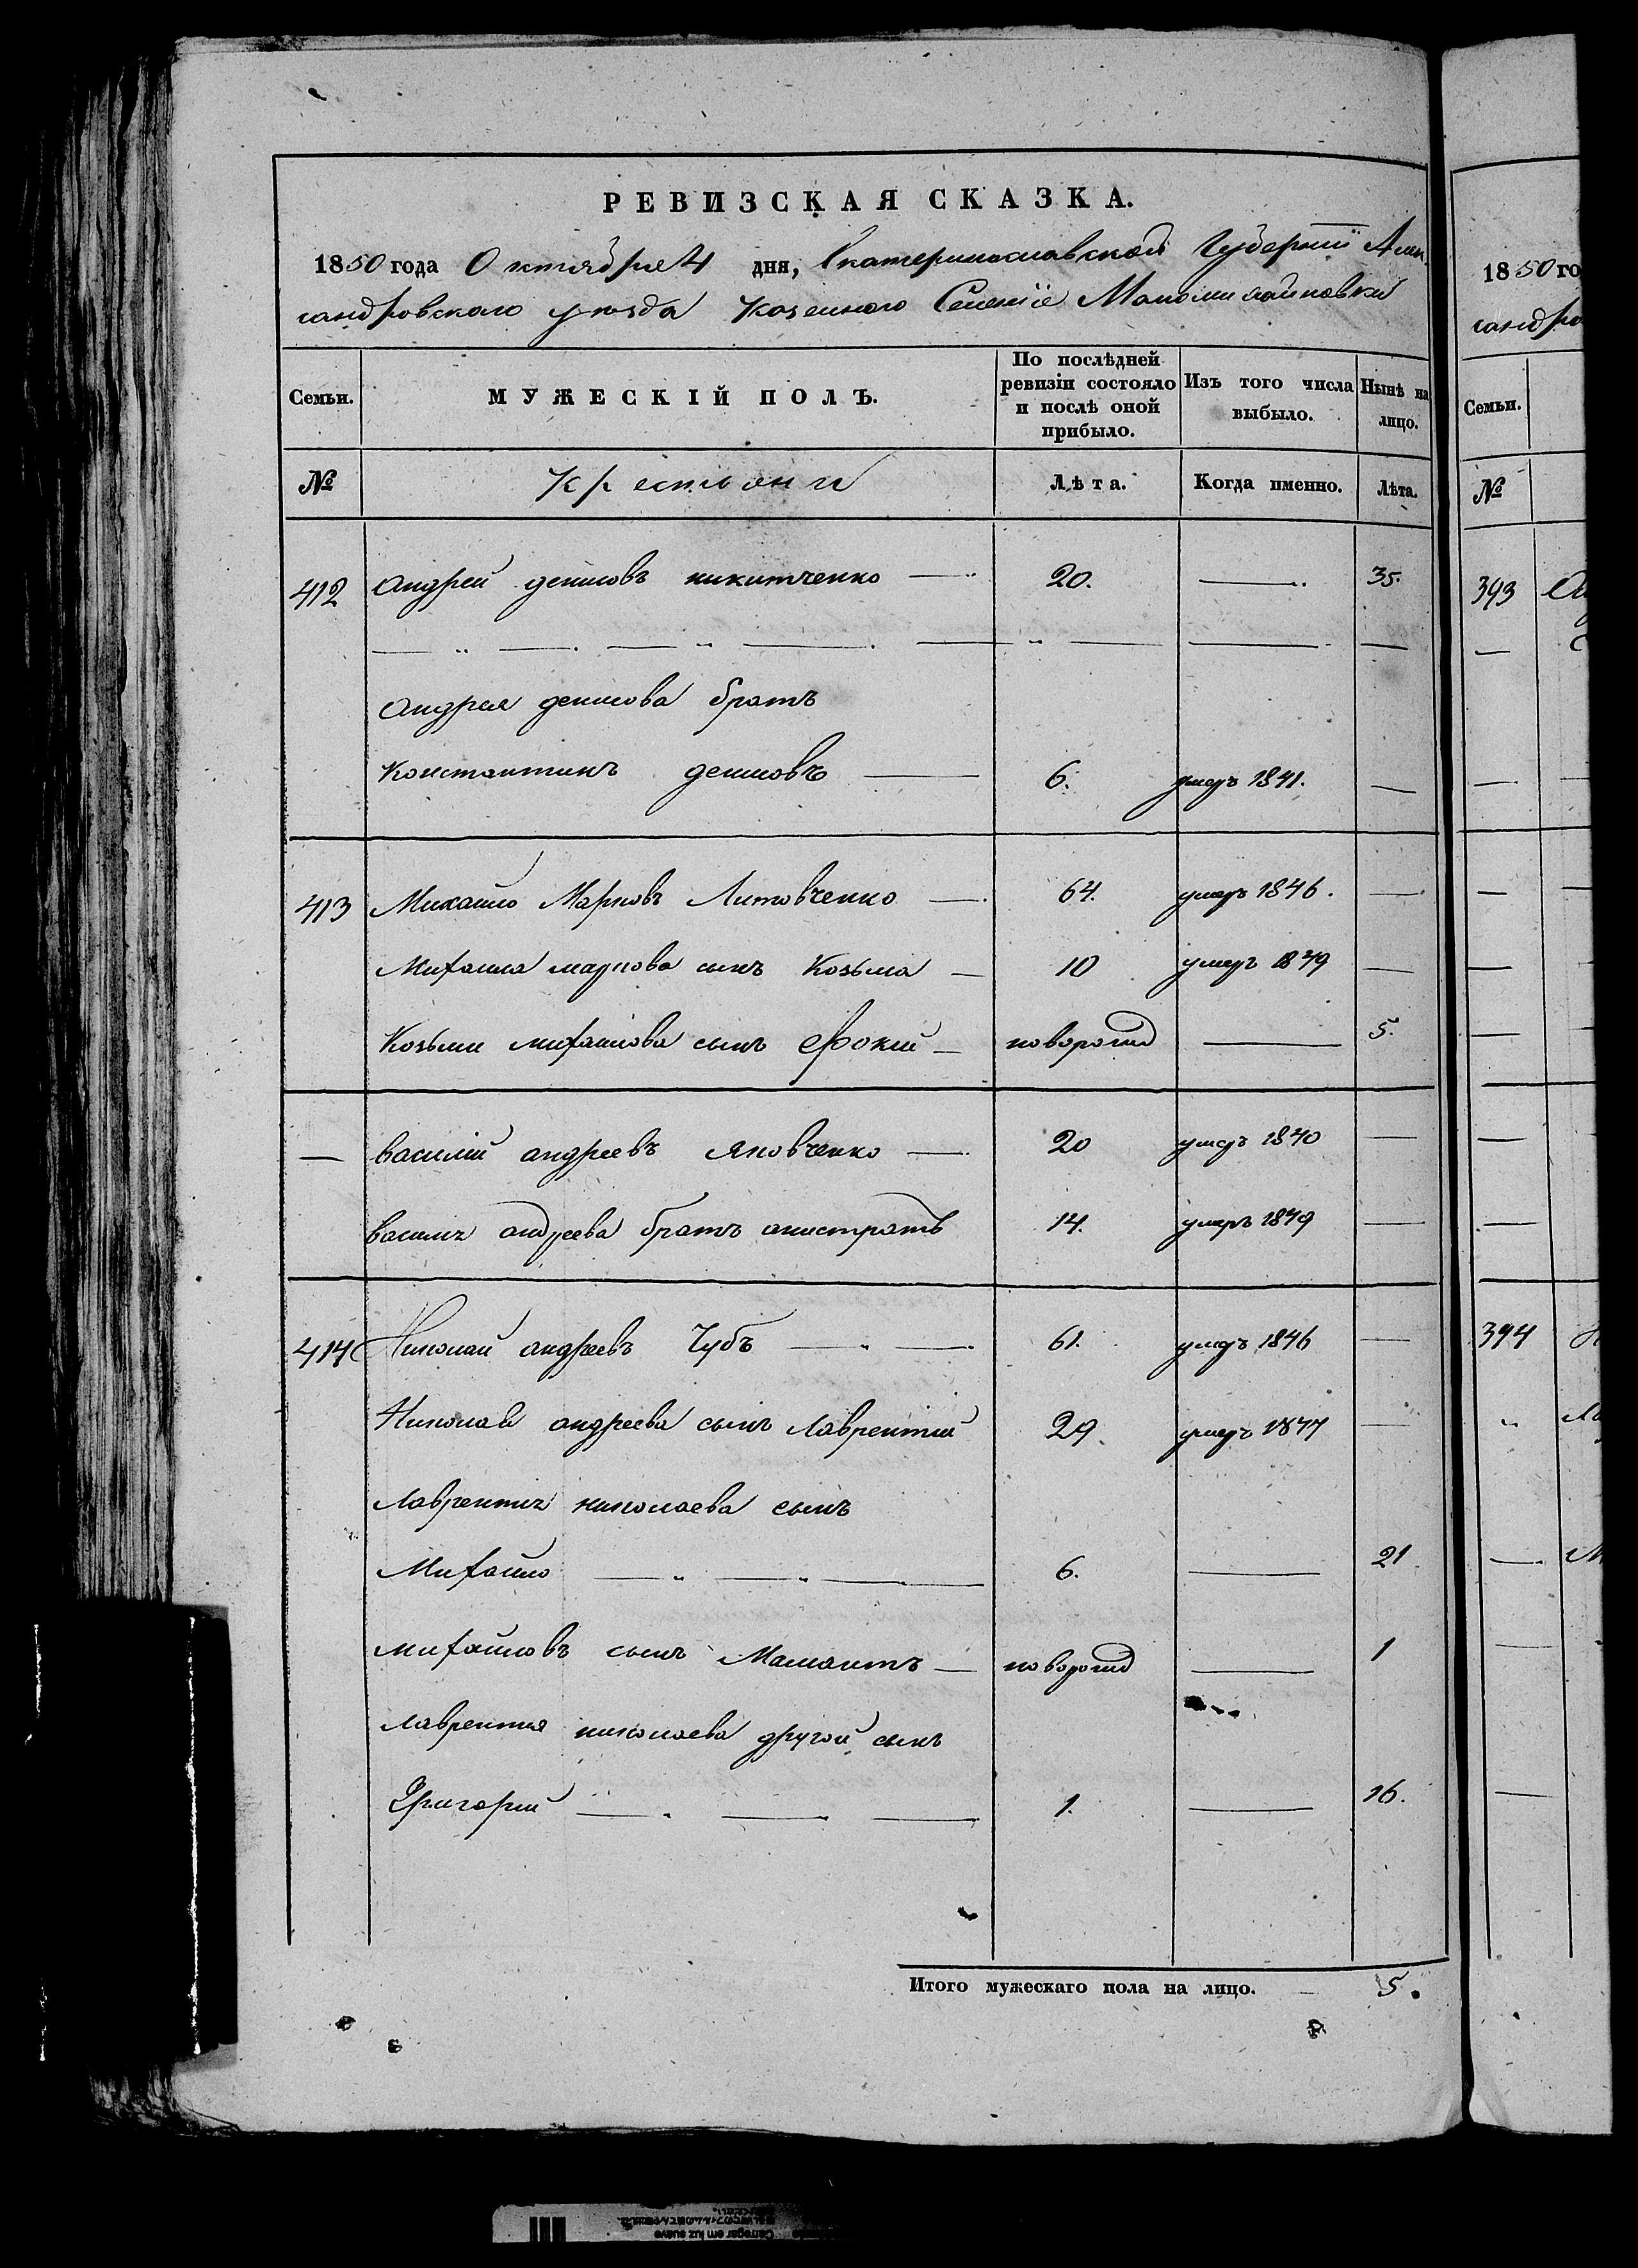 РЕВИЗСКАЯ СКАЗКА.
1850 года Октября 4 дня, Екатеринославской Губернїи Алек
сандровского уезда Казенного Селенїе
Семьи. МУЖЕСКІЙ ПОЛЪ. По послѣдней ревизіи состояло и послѣ оной прибыло. Изъ того числа выбыло. Нынѣ на лицо.
№ Крестьяни Лѣта. Когда именно. Лѣта.
412 Андрей денисовъ никитченко 20. 35.
Андрея денисова братъ
Константинъ денисовъ 6. умеръ 1841.
413 Михайло Марковъ Литовченко 64. умеръ 1846.
Михайла маркова сынъ Козьма 10 умеръ 1849
Козьми михайлова сынъ Фокий новорожд 5.
василий андреевъ Яновченко 20 умеръ 1840
василия андреева братъ анистратъ 14. умеръ 1849
414 Николай андреевъ Чубъ 61. умеръ 1846
Николая андреева сынъ лаврентий 29. умеръ 1844
лаврентия николаева сынъ
Михайло 6. 21
михайловъ сынъ Мамантъ новорожд 1
лаврентия николаева другой сынъ
Григорий 1. 16.
Итого мужескаго пола на лицо. 5.
1850 го
сандро
Семьи.
№
393
394